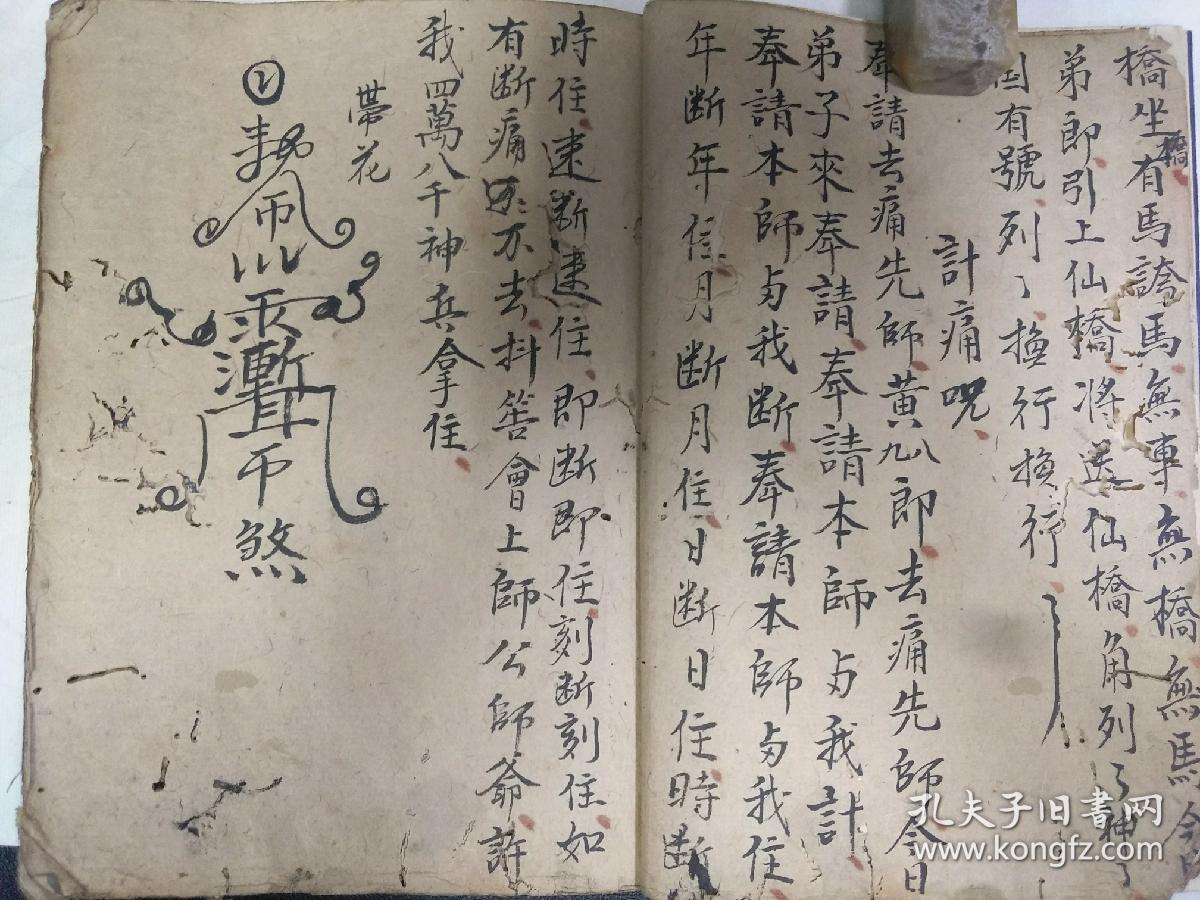 橋坐有馬誇馬無車無橋無馬今日
橋
弟郎引上仙橋將送仙橋角列〻
国有號列〻換行換行
計痛咒
奉請去痛先師黃九八郎去痛先師今日
弟子來奉請奉請本師与我計
奉請本師与我断奉請本師与我住
年断年住月断月住日断日住時断
時住速断速住即断即住刻断刻住如
有断痛不去抖答會上師公師爺許
我四萬八千神兵拿住
帶花
煞
孔夫子旧书网
www.kongfz.com